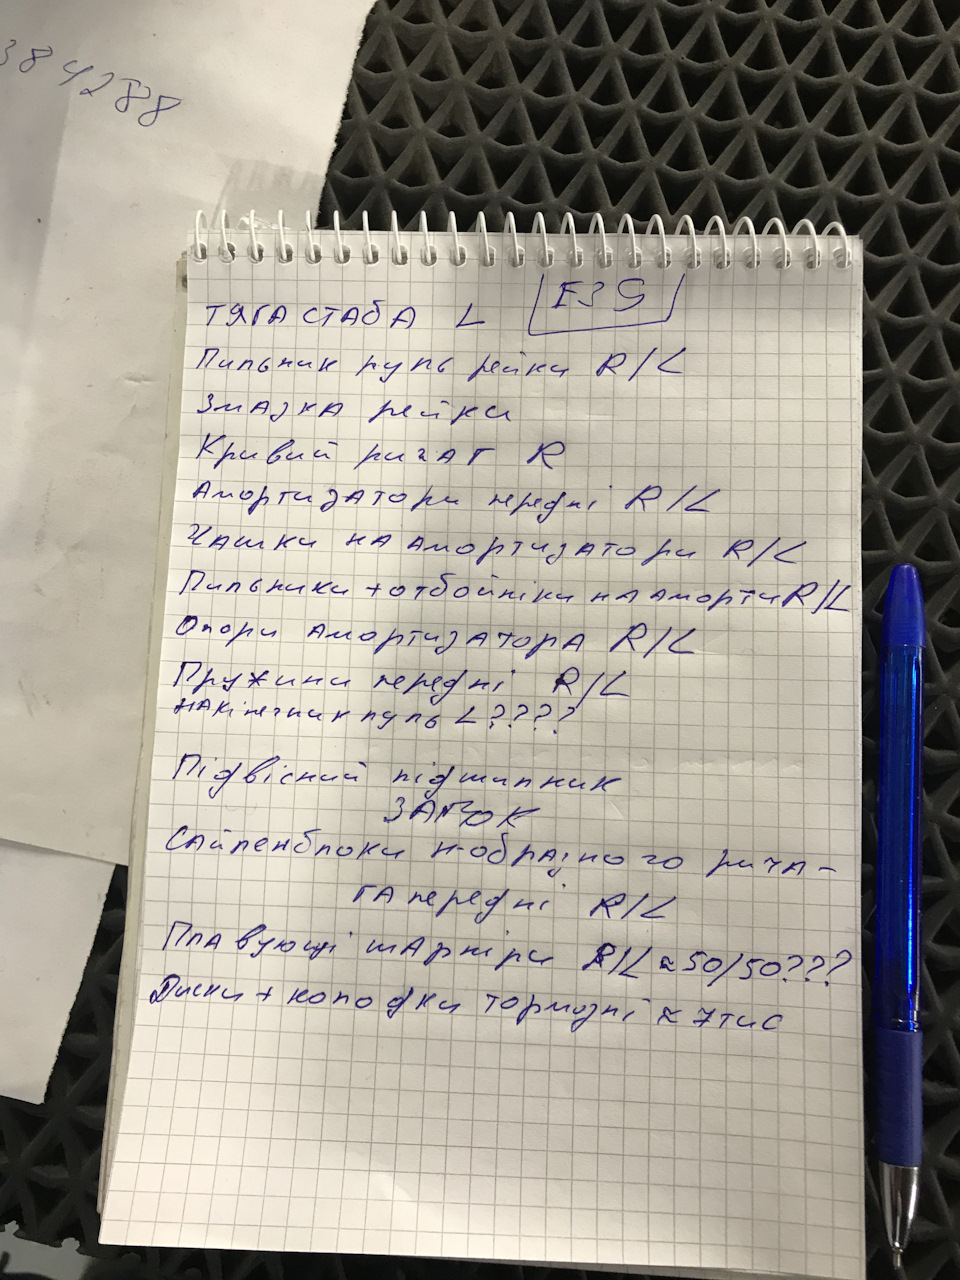 384288
E39
ТЯГА СТАБА L
Пильник руль рейки R/L
Змазка рейки
Кривий ричаг R
Амортизатори передні R/L
Чашки на амортизатори R/L
Пильники + отбойніки на аморти R/L
Опори амортизатора R/L
Пружини передні R/L
накінечник руль L????
Підвісний підшипник
ЗАМОК
Сайленблоки н-образного рича-
га передні R/L
Плавующі шарніри R/L ≈50/50???
Диски + колодки тормозні ≈ 7тис